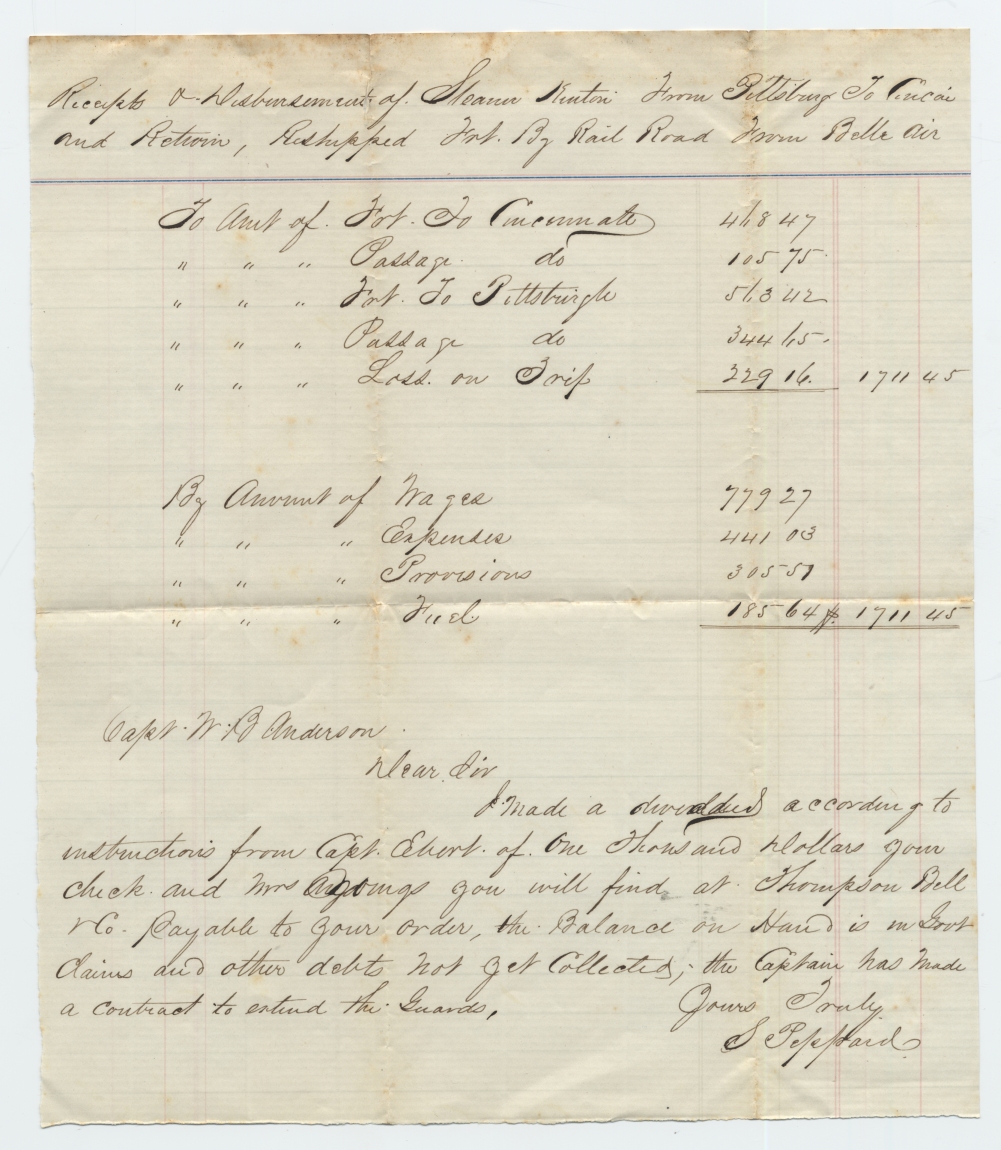 Receipts & Disbursement of Steamer Kenton From Pittsburg To Cincin
and Return, Reshipped Frt. By Rail Road From Belle Air
To Amt of Frt. To Cincinnati 468 47
" " " Passage do 105 75
" " " Frt. To Pittsburgh 563 42
" " " Passage do 344 65
" " " Loss on Trip 229 16 1711 45
By Amount of Wages 779 27
" " " Expenses 441 03
" " " Provisions 305 51
" " " Fuel 185 64 $ 1711 45
Capt. W. B Anderson
Dear Sir
I Made a according to
instructions from Capt. Ebert. of One Thousand Dollars your
check and Mrs you will find at Thompson Bell
& Co. Payable to your order, the Balance on Hand is in Govt
Claims and other debts not yet Collected, the Captain has Made
a contract to extend the Guards,
Yours Truly
S Peppard